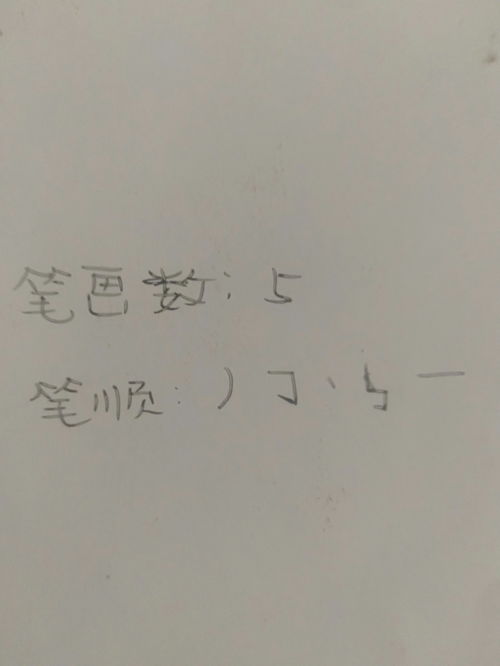 笔画数:5
笔顺:丿𠃍丶㇉一